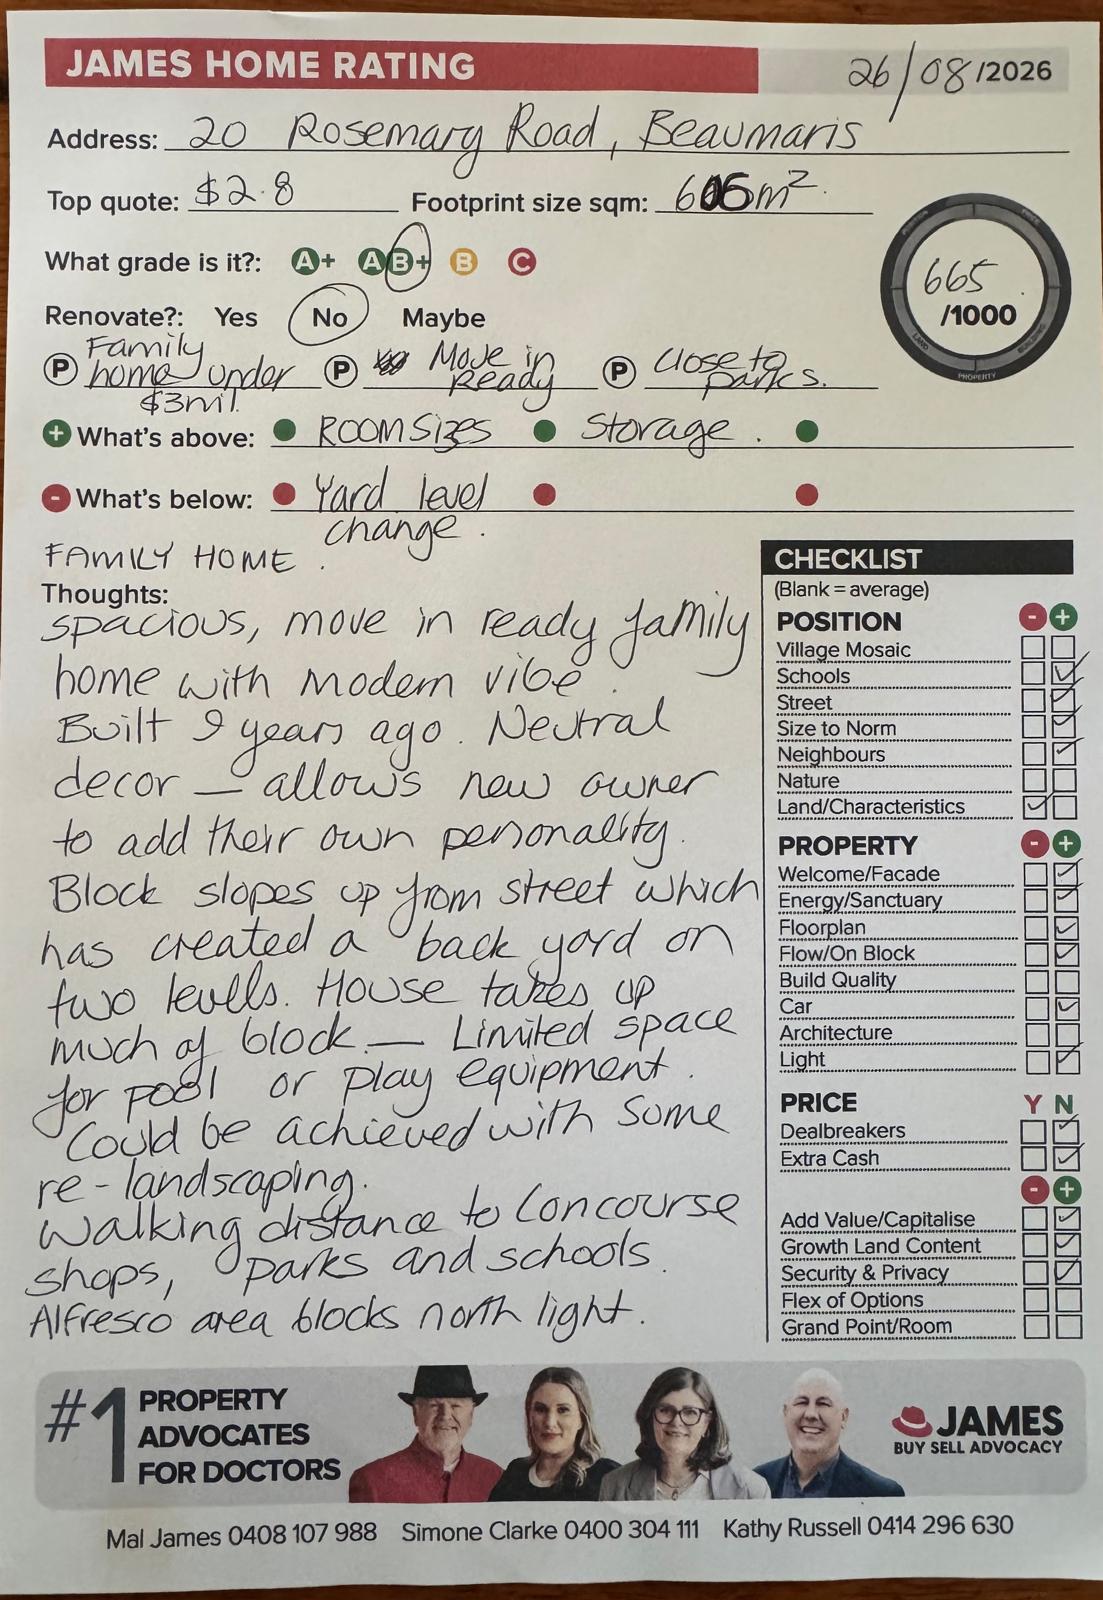 JAMES HOME RATING
26/08/2026
Address: 20 Rosemary Road, Beaumaris
Top quote: $2.8 Footprint size sqm: 606m²
What grade is it?: A+ A B+ B C
665
/1000
Renovate?: Yes No Maybe
P Family home under $3mil. P Move in ready P Close to parks.
+ What's above: Room sizes Storage.
- What's below: Yard level change.
FAMILY HOME.
Thoughts:
spacious, move in ready family
home with modern vibe.
Built 9 years ago. Neutral
decor — allows new owner
to add their own personality.
Block slopes up from street which
has created a back yard on
two levels. House takes up
much of block — Limited space
for pool or play equipment.
Could be achieved with some
re-landscaping.
Walking distance to Concourse
shops, parks and schools.
Alfresco area blocks north light.
CHECKLIST
(Blank = average)
POSITION - +
Village Mosaic
Schools
Street
Size to Norm
Neighbours
Nature
Land/Characteristics
PROPERTY - +
Welcome/Facade
Energy/Sanctuary
Floorplan
Flow/On Block
Build Quality
Car
Architecture
Light
PRICE Y N
Dealbreakers
Extra Cash
- +
Add Value/Capitalise
Growth Land Content
Security & Privacy
Flex of Options
Grand Point/Room
#1 PROPERTY
ADVOCATES
FOR DOCTORS
JAMES
BUY SELL ADVOCACY
Mal James 0408 107 988 Simone Clarke 0400 304 111 Kathy Russell 0414 296 630